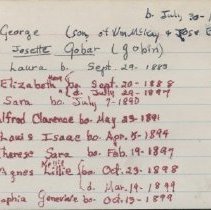 b. July 20-
George (son of Wm McKay & Jose
Josette Gobar (gobin)
Laura b. Sept. 29-1883
Mary
Elizabeth b. Sept. 20-1888
d. July 29-1897
Sara bo. July 7-1890
Alfred Clarence bo. May 23-1891
Louis Isaac bo. Apr. 5-1894
Therese Sara bo. Feb. 19-1897
Nellie
Agnes Lillie bo. Oct. 29-1898
d. Mar. 19-1899
Sophia Genevieve bo. Oct. 13-1899